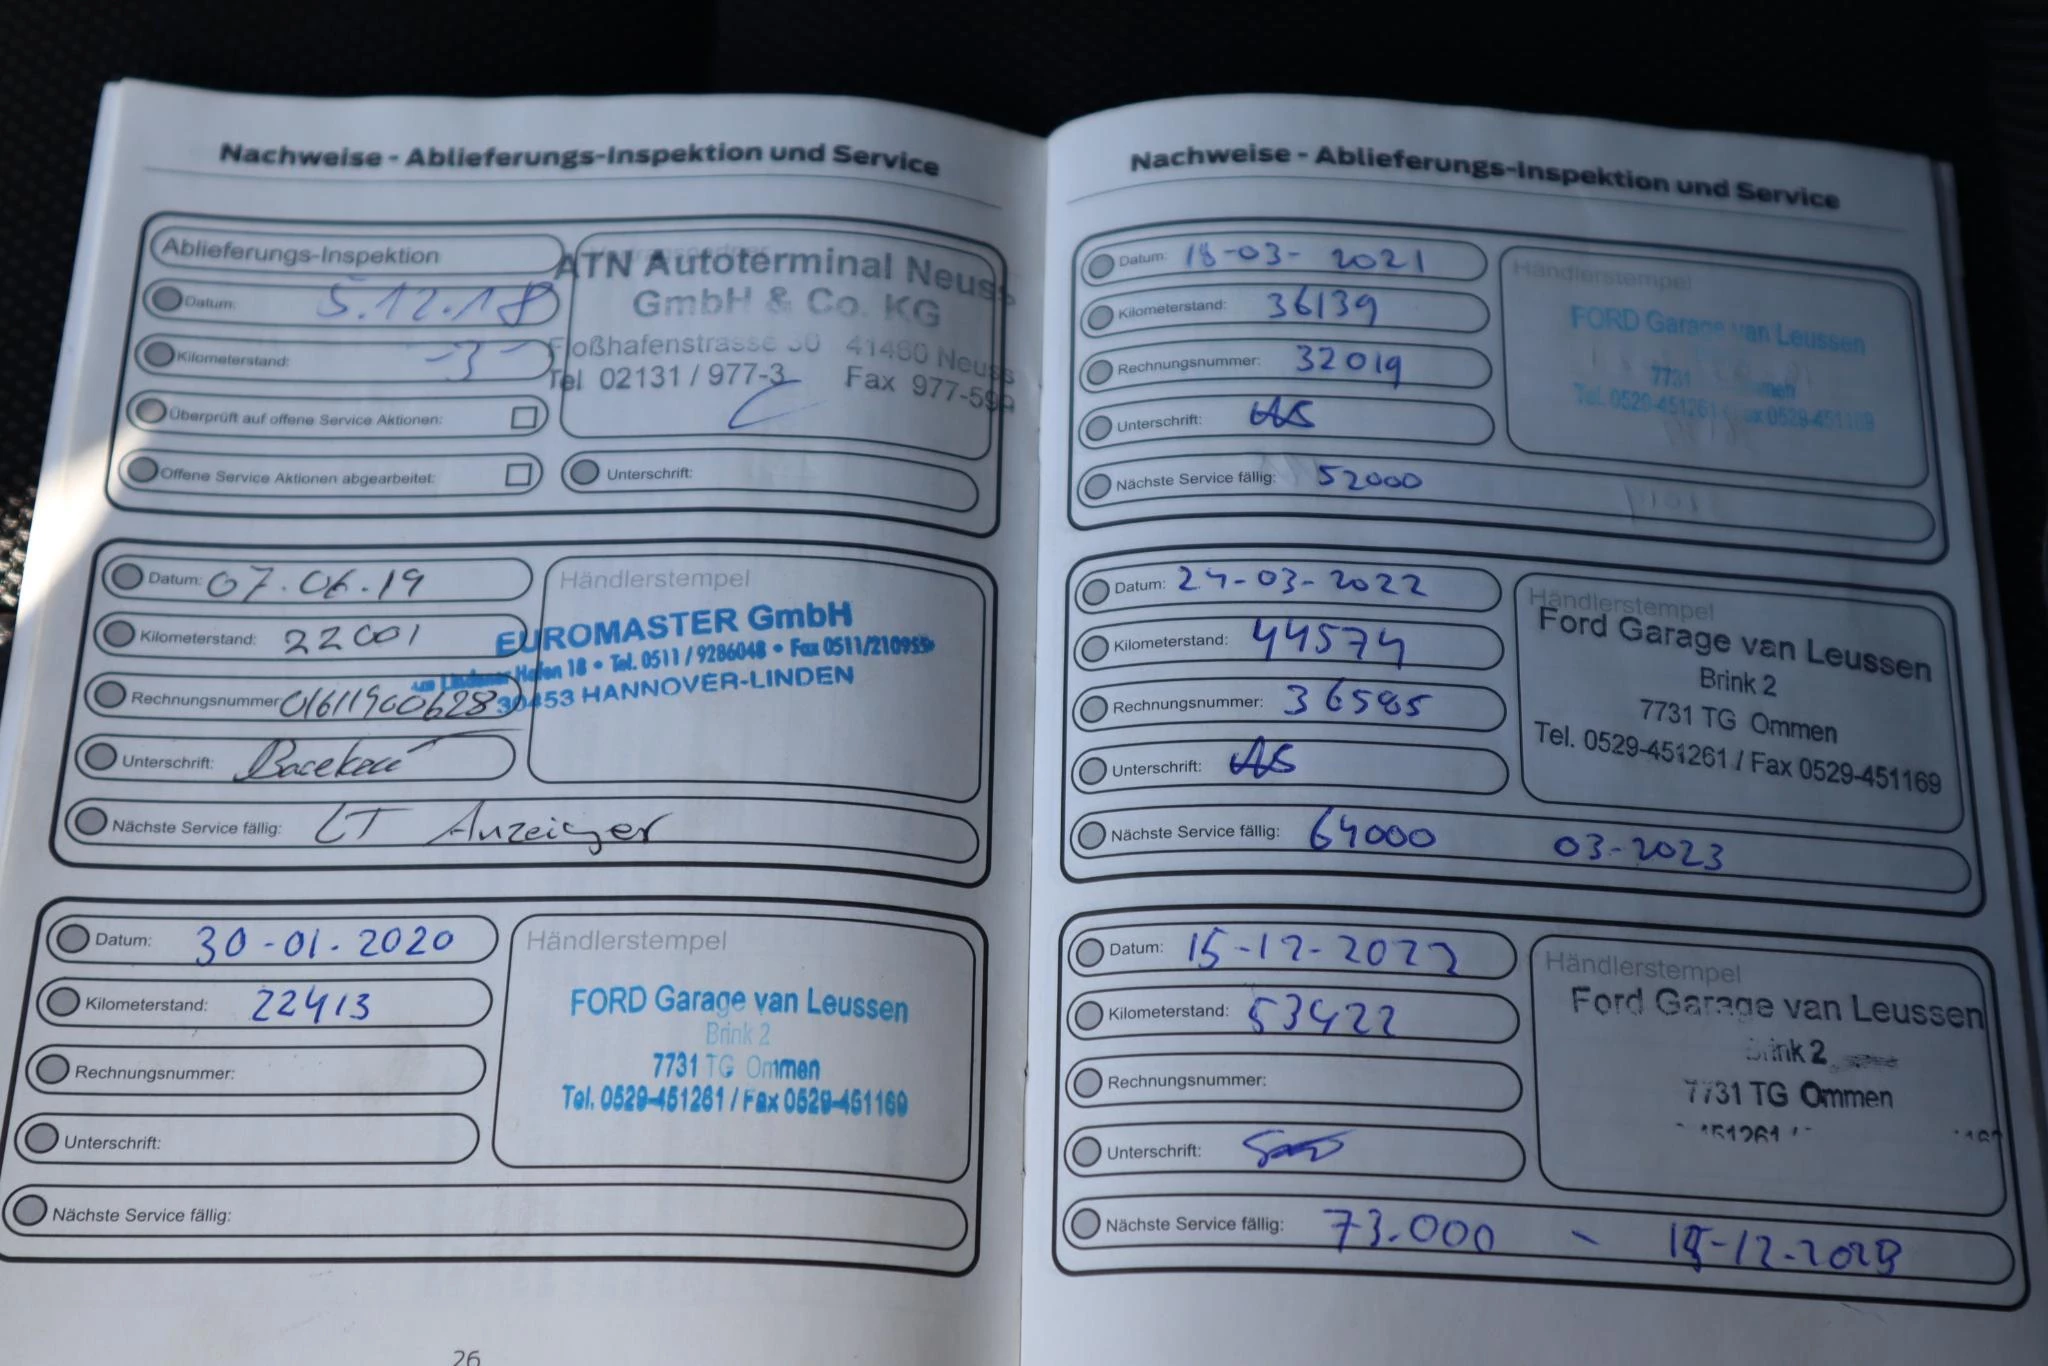 Nachweise - Ablieferungs-Inspektion und Service
Ablieferungs-Inspektion
Datum: 5.12.18
Kilometerstand: -3-
Überprüft auf offene Service Aktionen:
Offene Service Aktionen abgearbeitet:
ATN Autoterminal Neuss
GmbH & Co. KG
Floßhafenstrasse 30 41460 Neuss
Tel 02131 / 977-3 Fax 977-599
Unterschrift:
Datum: 07.06.19
Kilometerstand: 22001
Rechnungsnummer: 01611900628
Unterschrift:
Nächste Service fällig: LT Anzeiger
Händlerstempel
EUROMASTER GmbH
Am Lindener Hafen 18 • Tel. 0511 / 9286048 • Fax 0511/210955
30453 HANNOVER-LINDEN
Datum: 30-01-2020
Kilometerstand: 22413
Rechnungsnummer:
Unterschrift:
Nächste Service fällig:
Händlerstempel
FORD Garage van Leussen
Brink 2
7731 TG Ommen
Tel. 0529-451261 / Fax 0529-451169
26
Nachweise - Ablieferungs-Inspektion und Service
Datum: 18-03-2021
Kilometerstand: 36139
Rechnungsnummer: 32019
Unterschrift:
Nächste Service fällig: 52000
Händlerstempel
FORD Garage van Leussen
7731 Ommen
Tel. 0529-451261 / Fax 0529-451169
Datum: 24-03-2022
Kilometerstand: 44574
Rechnungsnummer: 36585
Unterschrift:
Nächste Service fällig: 64000 03-2023
Händlerstempel
Ford Garage van Leussen
Brink 2
7731 TG Ommen
Tel. 0529-451261 / Fax 0529-451169
Datum: 15-12-2022
Kilometerstand: 53422
Rechnungsnummer:
Unterschrift:
Nächste Service fällig: 73.000 - 15-12-2023
Händlerstempel
Ford Garage van Leussen
Brink 2
7731 TG Ommen
451261 /